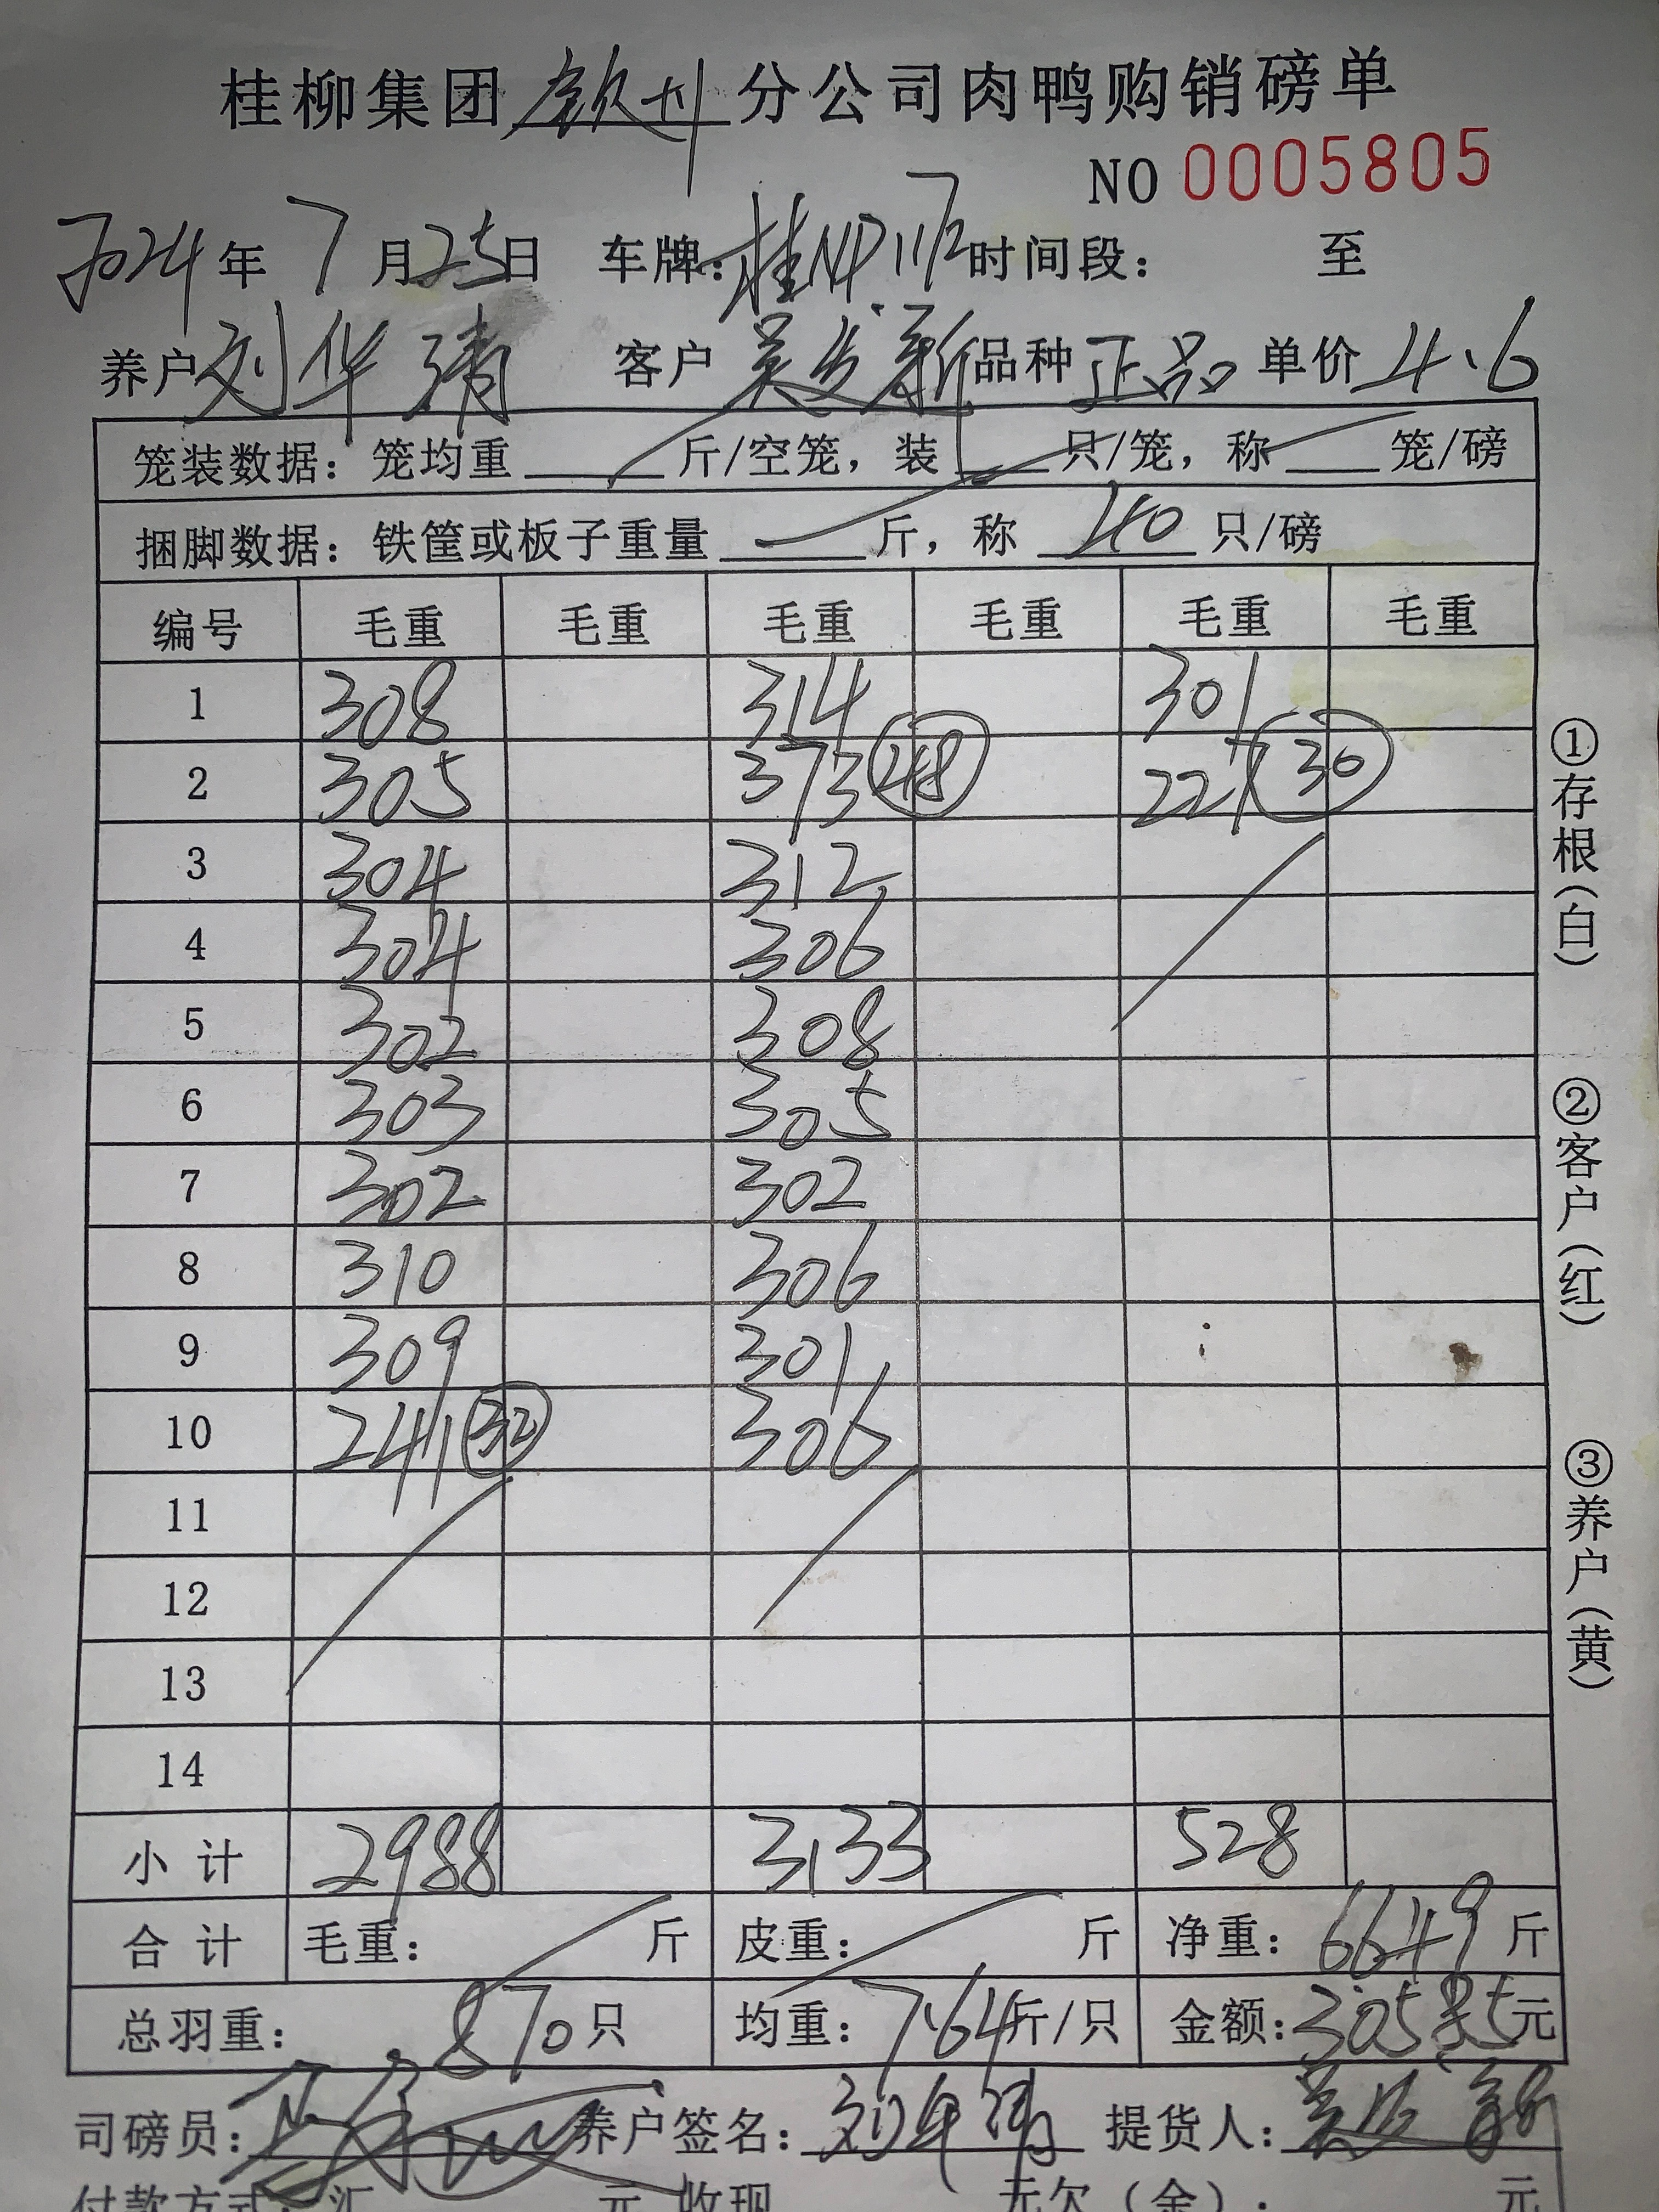 桂柳集团钦州分公司肉鸭购销磅单
NO 0005805
2024年 7月25日 车牌: 时间段: 至
养户刘华清 客户 吴发新 品种 正品 单价 4.6
笼装数据: 笼均重 斤/空笼, 装 只/笼, 称 笼/磅
捆脚数据: 铁筐或板子重量 斤, 称 40 只/磅
编号 毛重 毛重 毛重 毛重 毛重 毛重
1 308 314 301
2 305 373 48 227 30
3 304 312
4 304 306
5 302 308
6 303 305
7 302 302
8 310 306
9 309 301
10 241 32 306
11
12
13
14
小计 2988 3133 528
合计 毛重: 斤 皮重: 斤 净重: 6649 斤
总羽重: 870只 均重: 7.64斤/只 金额: 元
司磅员: 养户签名: 刘华清 提货人: 吴发新
付款方式: 汇 元 收现 元欠(金): 元
①存根(白)
②客户(红)
③养户(黄)